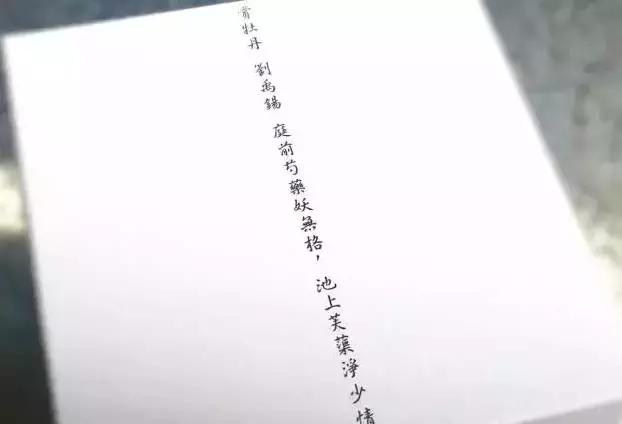 賞牡丹 劉禹錫 庭前芍藥妖無格，池上芙蕖淨少情